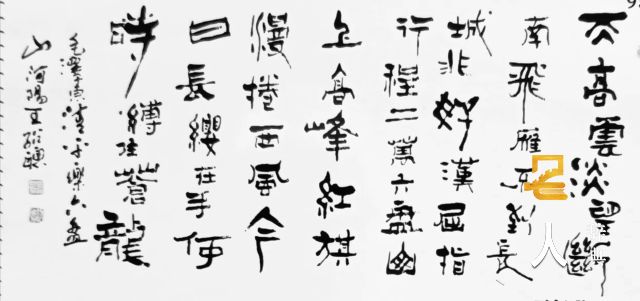 天高雲淡望斷
南飛雁不到長
城非好漢屈指
行程二萬六盤山
上高峰紅旗
漫捲西風今
日長纓在手何
時縛住蒼龍
毛澤東清平樂六盤
山 河陽王
名人